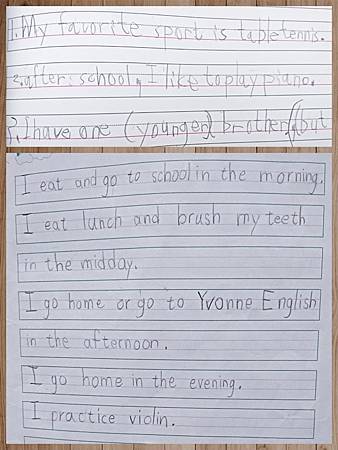 1. My favorite sport is table tennis.
2. after: school, I like to play piano.
3. I have one (younger) brother, (but
I eat and go to school in the morning.
I eat lunch and brush my teeth
in the midday.
I go home or go to Yvonne English
in the afternoon.
I go home in the evening.
I practice violin.